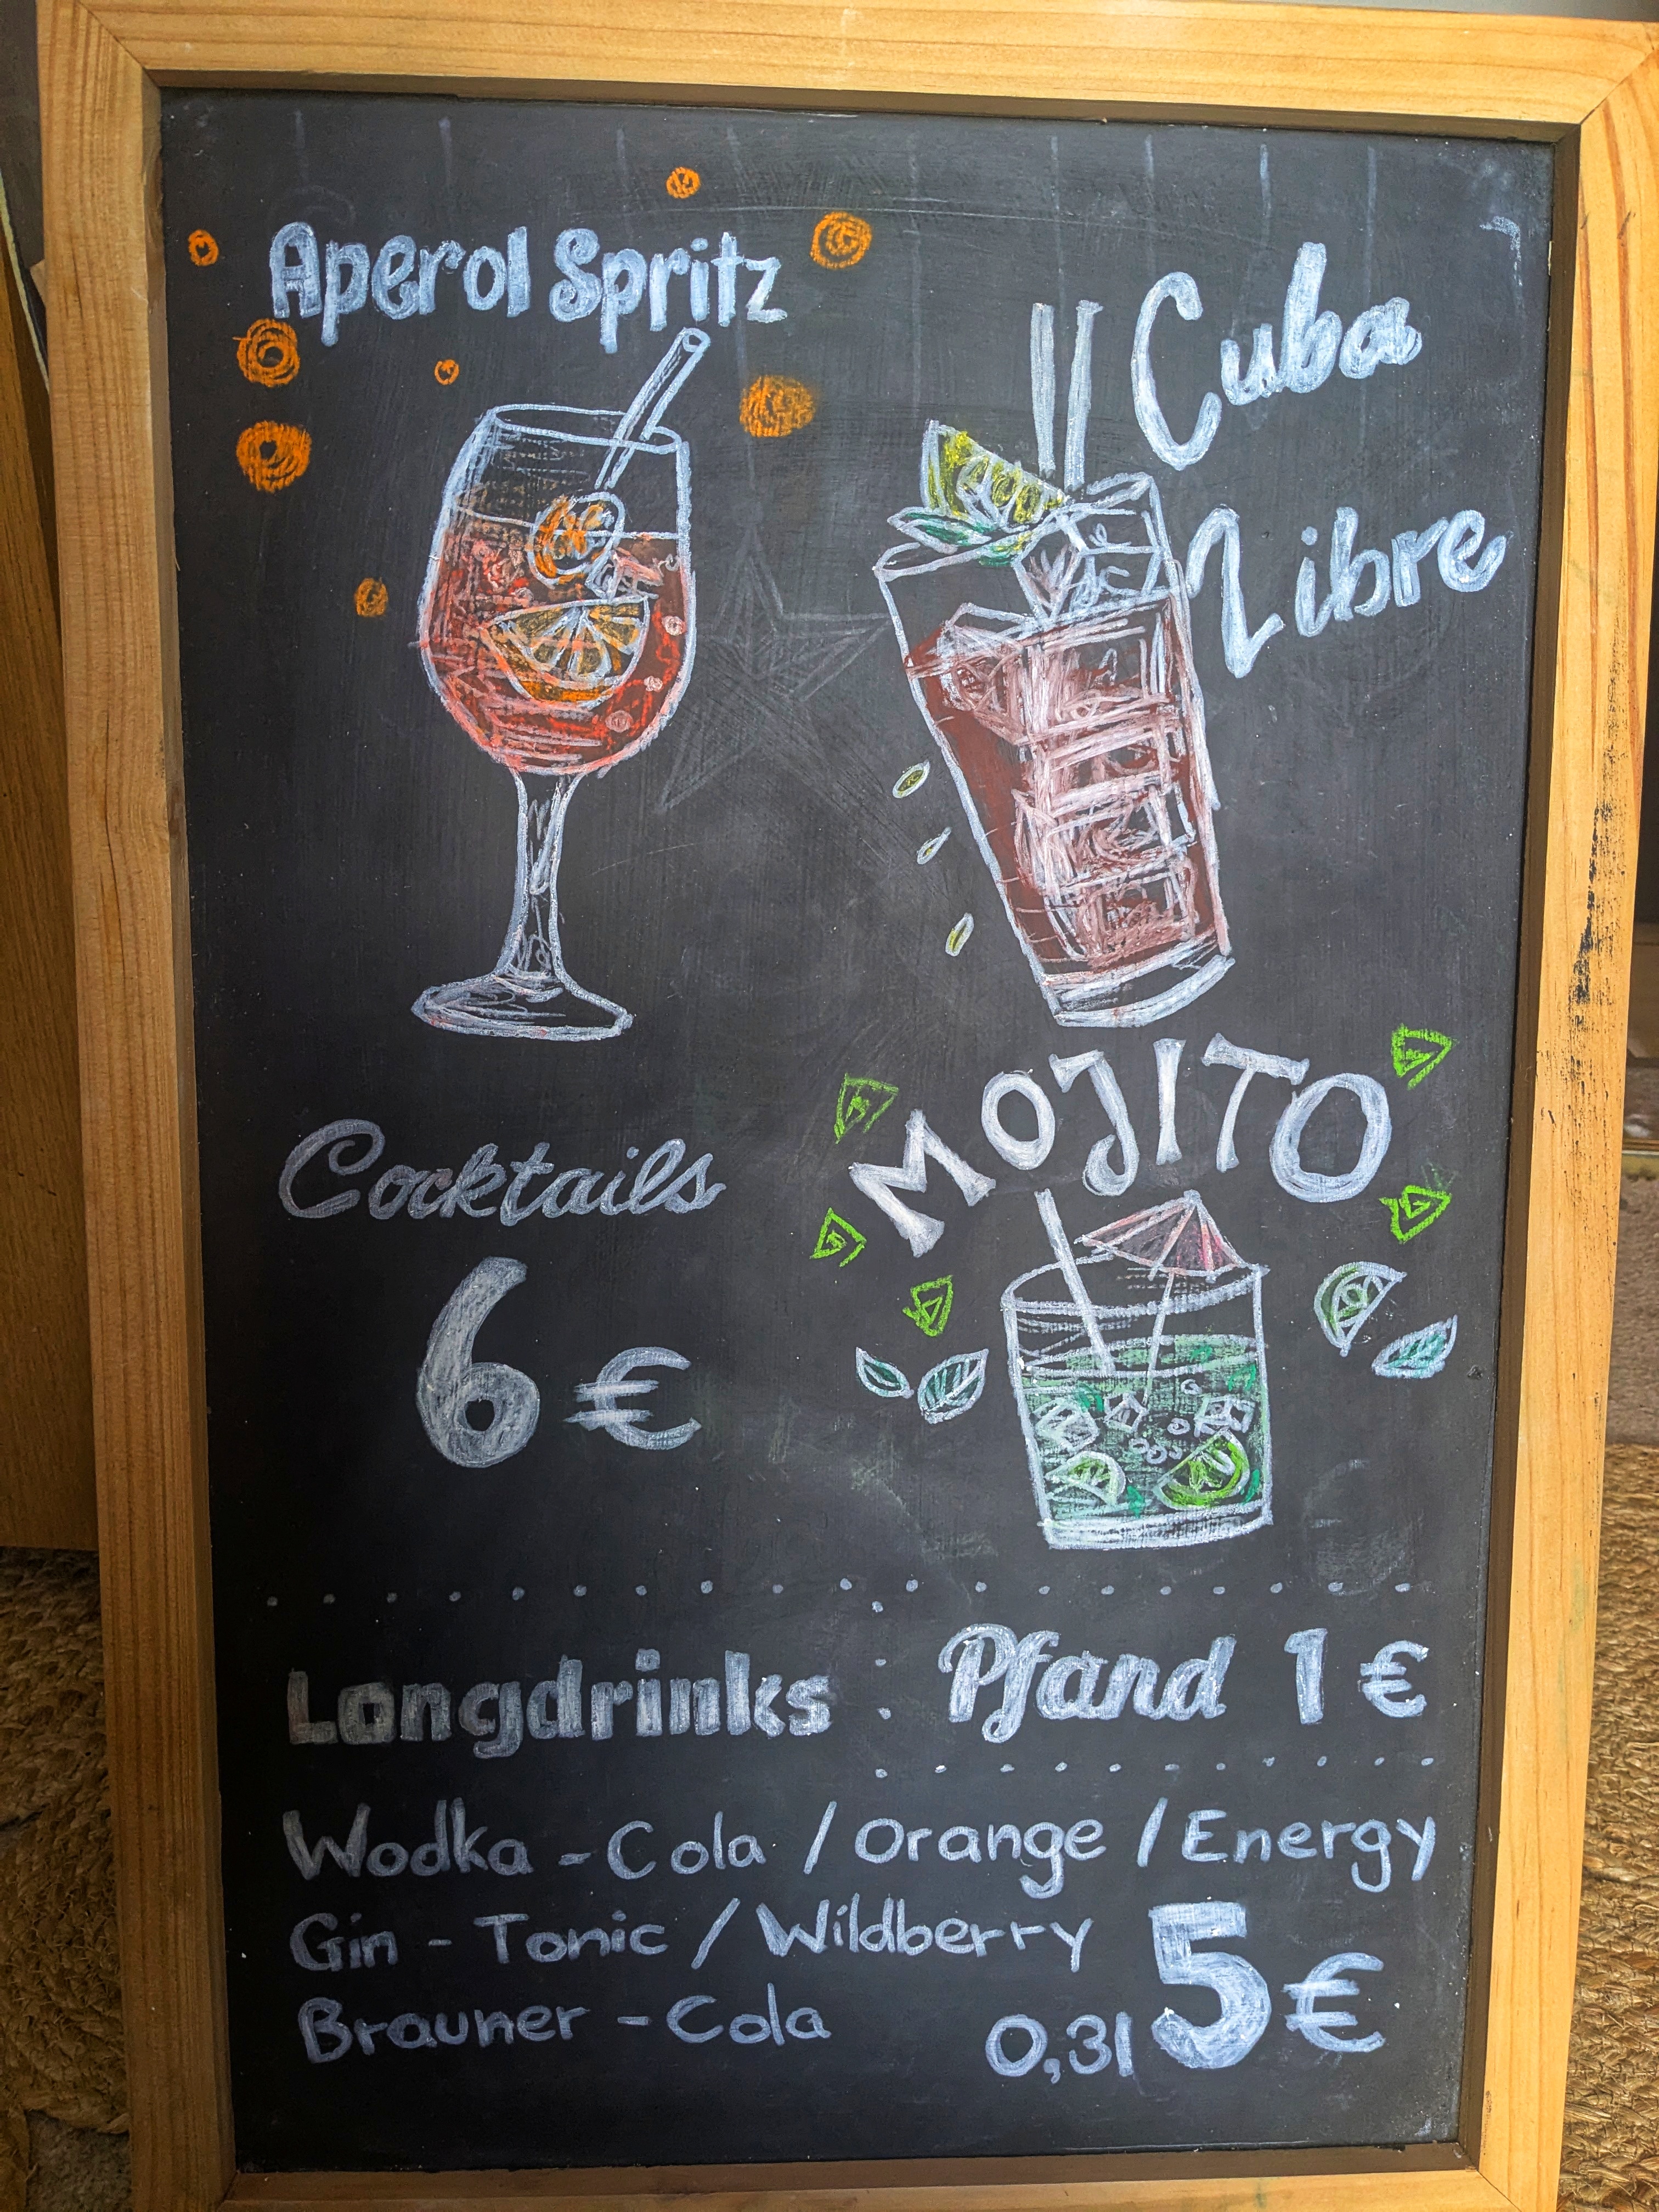 Aperol Spritz
Cuba
Libre
MOJITO
Cocktails
6 €
Longdrinks
Pfand 1 €
Wodka - Cola / Orange / Energy
Gin - Tonic / Wildberry
Brauner - Cola
0,3l 5 €